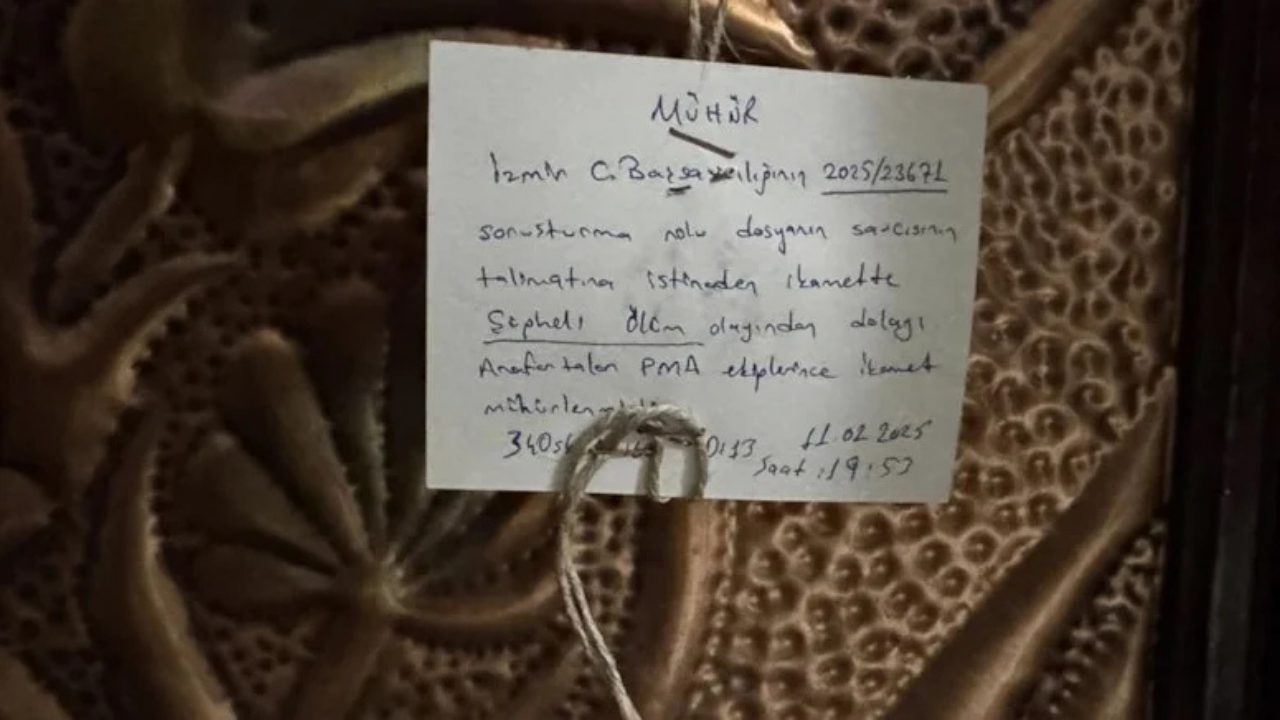 MÜHÜR
İzmir C.Başsavcılığının 2025/23671
soruşturma nolu dosyanın savcısının
talimatına istineden ikamette
Şüpheli Ölüm olayından dolayı
Anafartalar PMA ekiplerince ikamet
11.02.2025
Saat :19:53